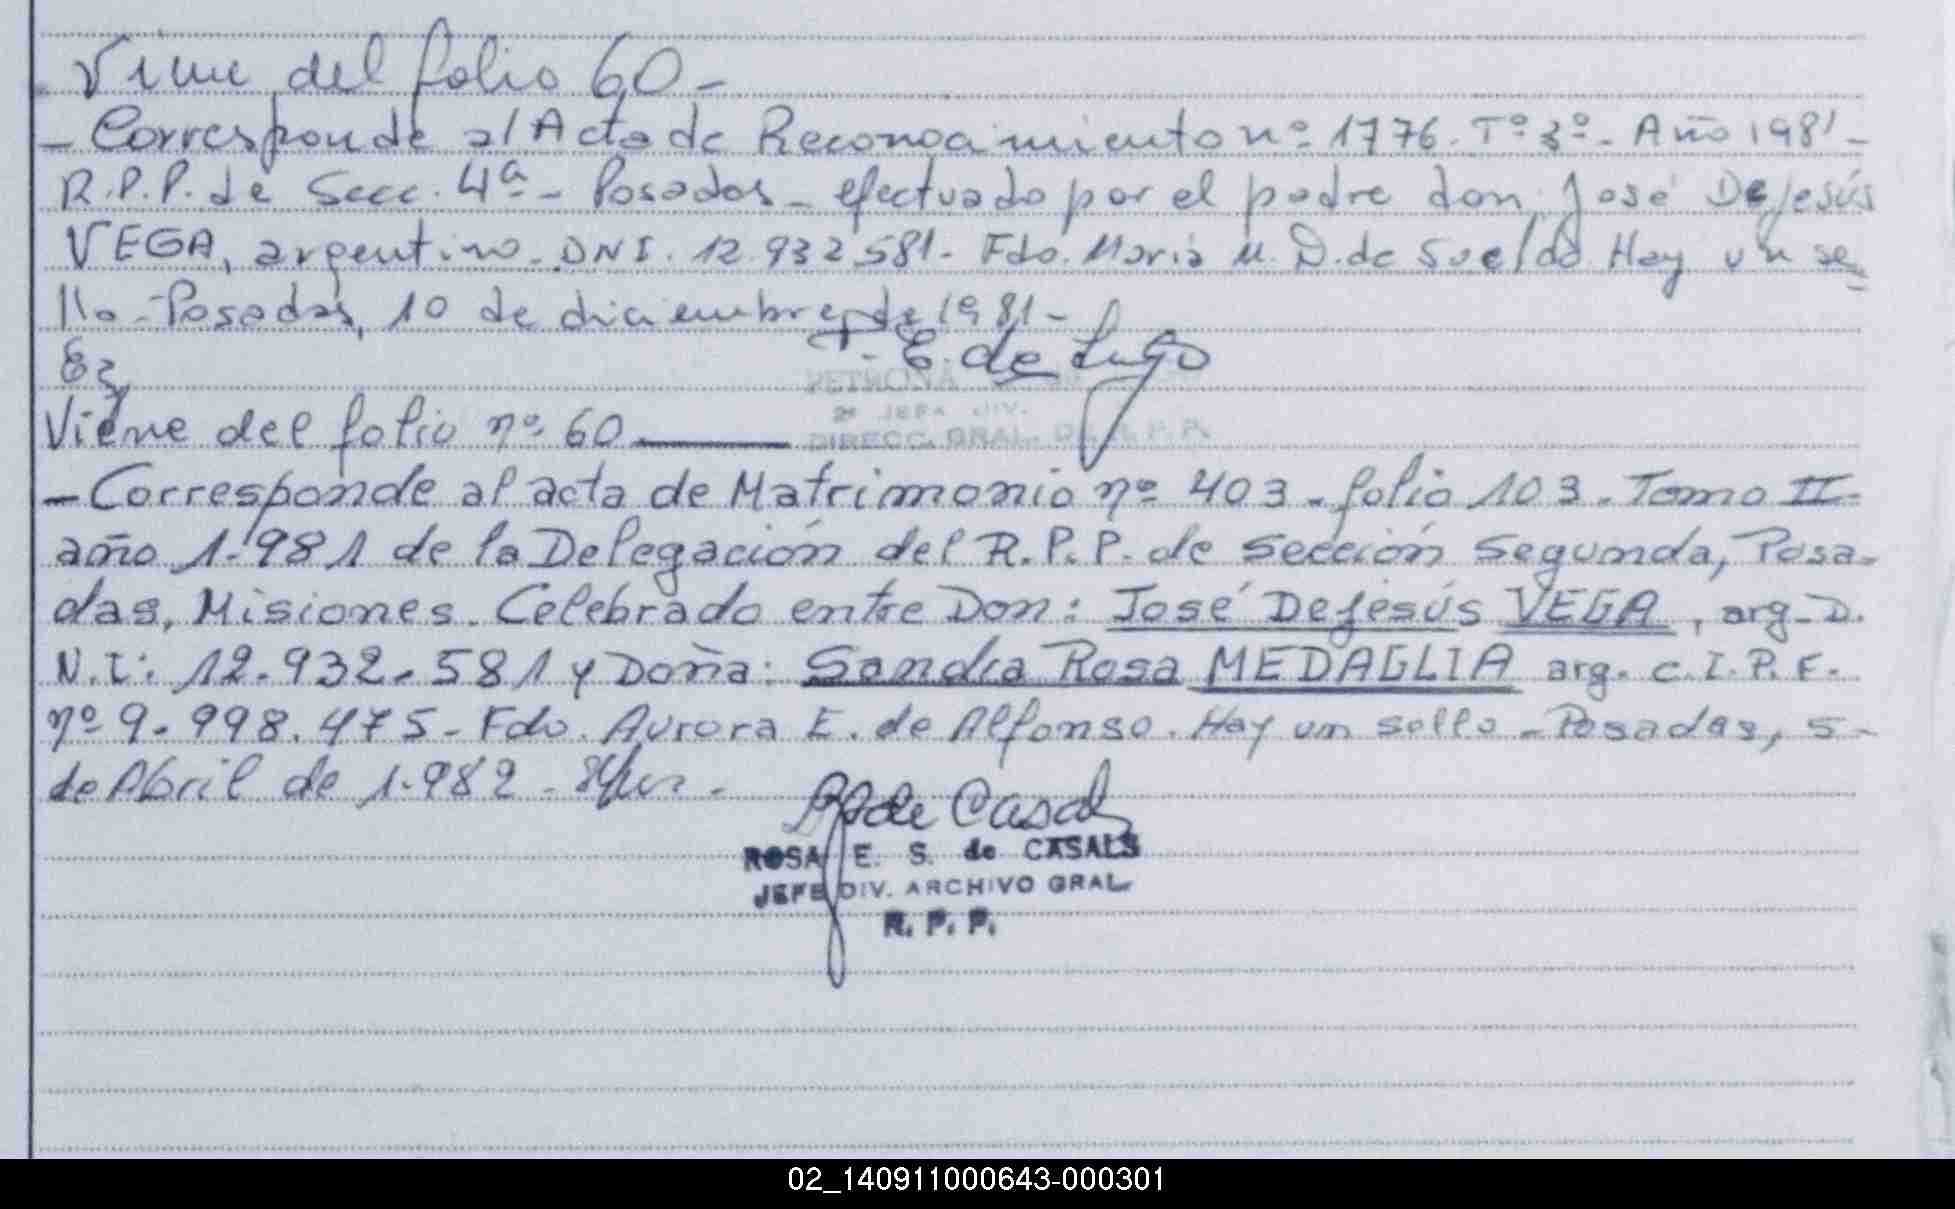 Viene del folio 60 -
- Corresponde al Acta de Reconocimiento nº 1776. Tº 3º - Año 1981 -
R.P.P. de Secc. 4ª - Posadas - efectuado por el padre don José DeJesús
VEGA, argentino - DNI. 12.932.581 - Fdo. Maria M. D. de Sueldo Hay un se=
llo - Posadas, 10 de diciembre de 1981 -
E. de Lugo
PETRONA
2º JEFA DIV.
DIRECC. GRAL. DE R. P. P.
Viene del folio nº 60
- Corresponde al acta de Matrimonio nº 403 - folio 103 - Tomo II -
año 1.981 de la Delegación del R.P.P. de Sección Segunda, Posa-
das, Misiones. Celebrado entre Don: José DeJesús VEGA, arg - D.
N.I: 12.932.581 y Doña: Sandra Rosa MEDAGLIA arg. C.I.P.F.
nº 9.998.475 - Fdo. Aurora E. de Alfonso. Hay un sello - Posadas, 5 -
de Abril de 1.982 -
de Casals
ROSA E. S. de CASALS
JEFE DIV. ARCHIVO GRAL.
R. P. P.
02_140911000643-000301